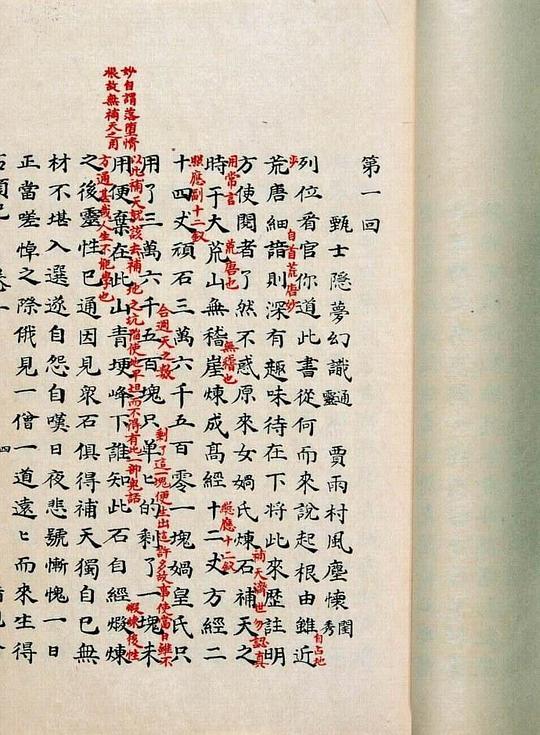 第一回
甄士隱夢幻識通靈 賈雨村風塵懷閨秀
列位看官你道此書從何而來說起根由雖近
自占地步
自首荒唐妙
荒唐細諳則深有趣味待在下將此來歷註明
方使閱者了然不惑原來女媧氏煉石補天之
補天濟世勿認真
用常言
時于大荒山
荒唐也
無稽崖
無稽也
煉成高經十二丈
照應十二釵
方經二
十四丈
照應副十二釵
頑石三萬六千五百零一塊媧皇氏只
用了三萬六千五百塊
合週天之數
只單匕的剩了一塊未
剩了這一塊便生出這許多故事使當日雖不
以此補天就該去補地之坑陷使地平坦而不得有此一部鬼話
用便棄在此山青埂峰下
妙自謂落墮情
根故無補天之用
誰知此石自經煅煉
煅煉後性
方通甚哉人生不能學也
之後靈性已通因見衆石俱得補天獨自己無
材不堪入選遂自怨自嘆日夜悲號慚愧一日
正當嗟悼之際俄見一僧一道遠匕而來生得